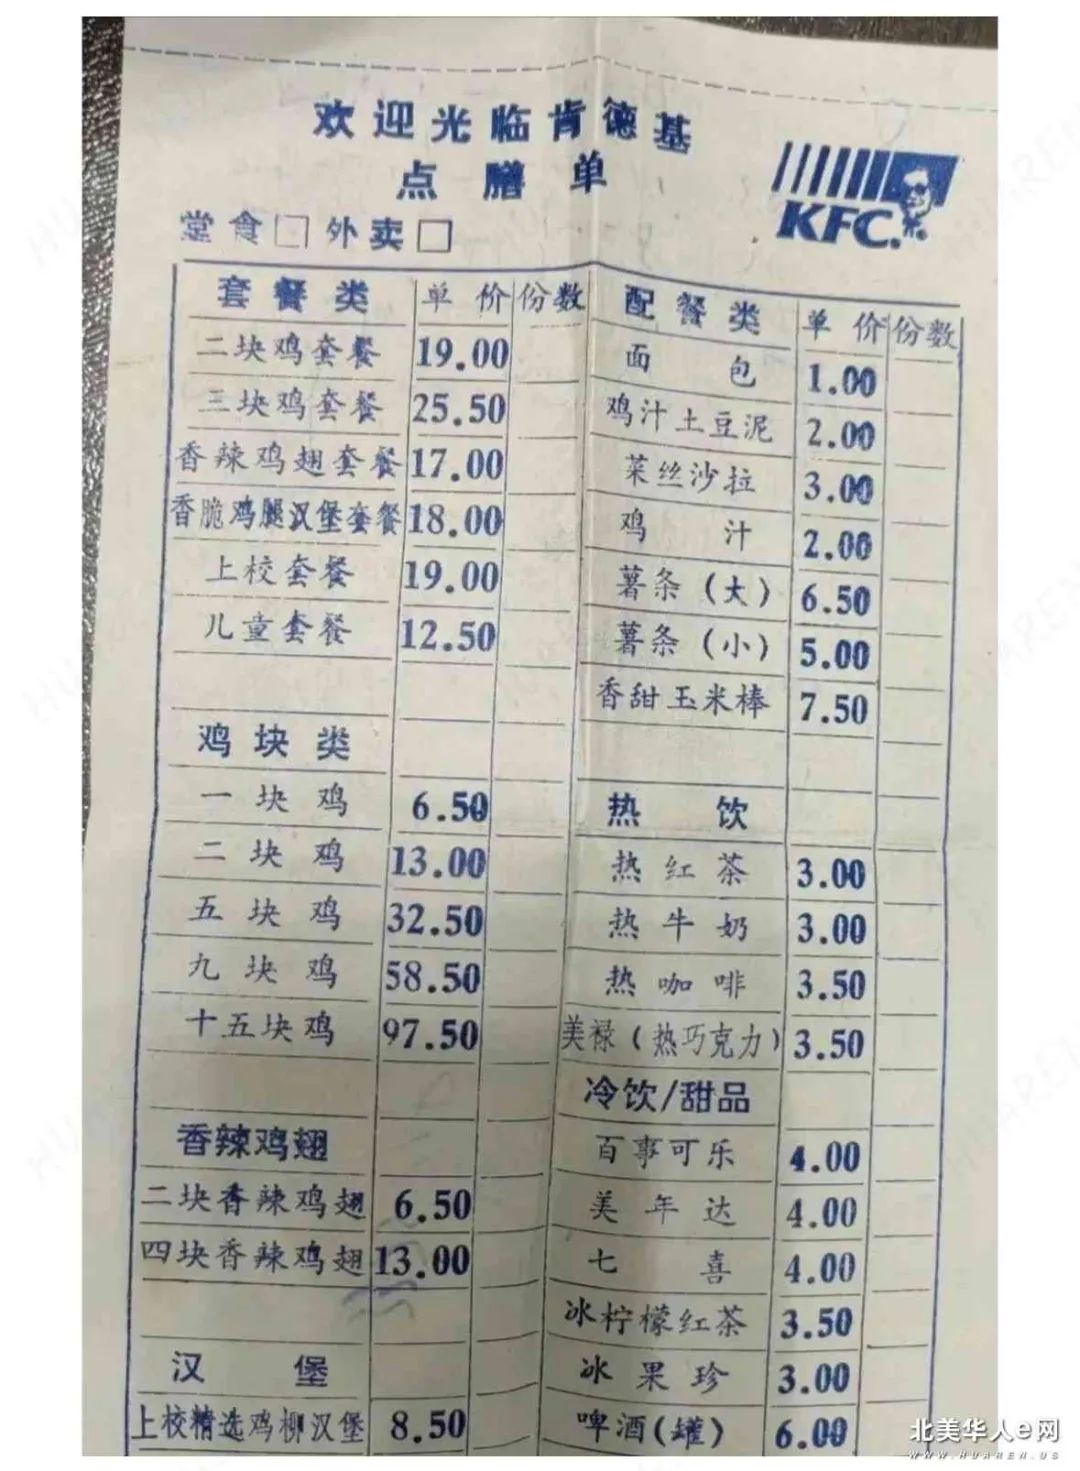 欢迎光临肯德基
点膳单
KFC.
堂食□ 外卖□
套餐类 单价 份数
二块鸡套餐 19.00
三块鸡套餐 25.50
香辣鸡翅套餐 17.00
香脆鸡腿汉堡套餐 18.00
上校套餐 19.00
儿童套餐 12.50
鸡块类
一块鸡 6.50
二块鸡 13.00
五块鸡 32.50
九块鸡 58.50
十五块鸡 97.50
香辣鸡翅
二块香辣鸡翅 6.50
四块香辣鸡翅 13.00
汉堡
上校精选鸡柳汉堡 8.50
配餐类 单价 份数
面包 1.00
鸡汁土豆泥 2.00
菜丝沙拉 3.00
鸡汁 2.00
薯条(大) 6.50
薯条(小) 5.00
香甜玉米棒 7.50
热饮
热红茶 3.00
热牛奶 3.00
热咖啡 3.50
美禄(热巧克力) 3.50
冷饮/甜品
百事可乐 4.00
美年达 4.00
七喜 4.00
冰柠檬红茶 3.50
冰果珍 3.00
啤酒(罐) 6.00
北美华人e网
www.HUAREN.US